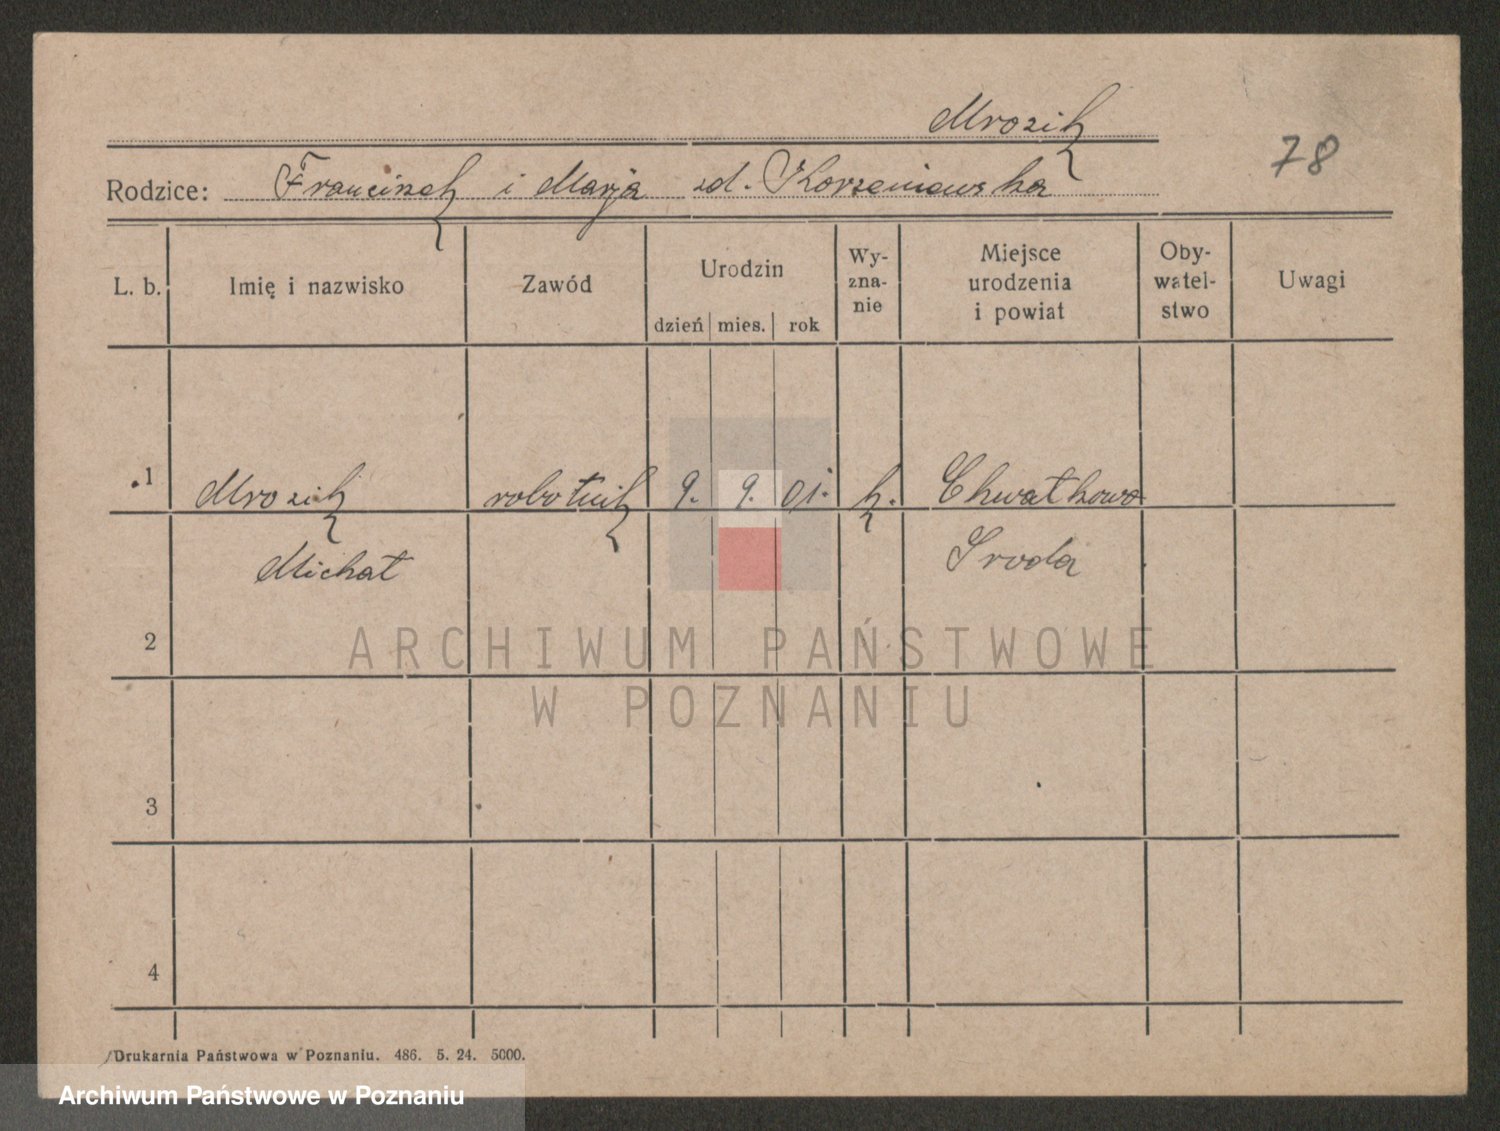 Mrozik
78
Rodzice: Franciszek i Marja zd. Korzeniewska
L. b. Imię i nazwisko Zawód Urodzin dzień mies. rok Wy-zna-nie Miejsce urodzenia i powiat Oby-watel-stwo Uwagi
1 Mrozik robotnik 9. 9. 01. k. Chwałkowo
Michał Środa
2
3
4
ARCHIWUM PAŃSTWOWE
W POZNANIU
Drukarnia Państwowa w Poznaniu. 486. 5. 24. 5000.
Archiwum Państwowe w Poznaniu